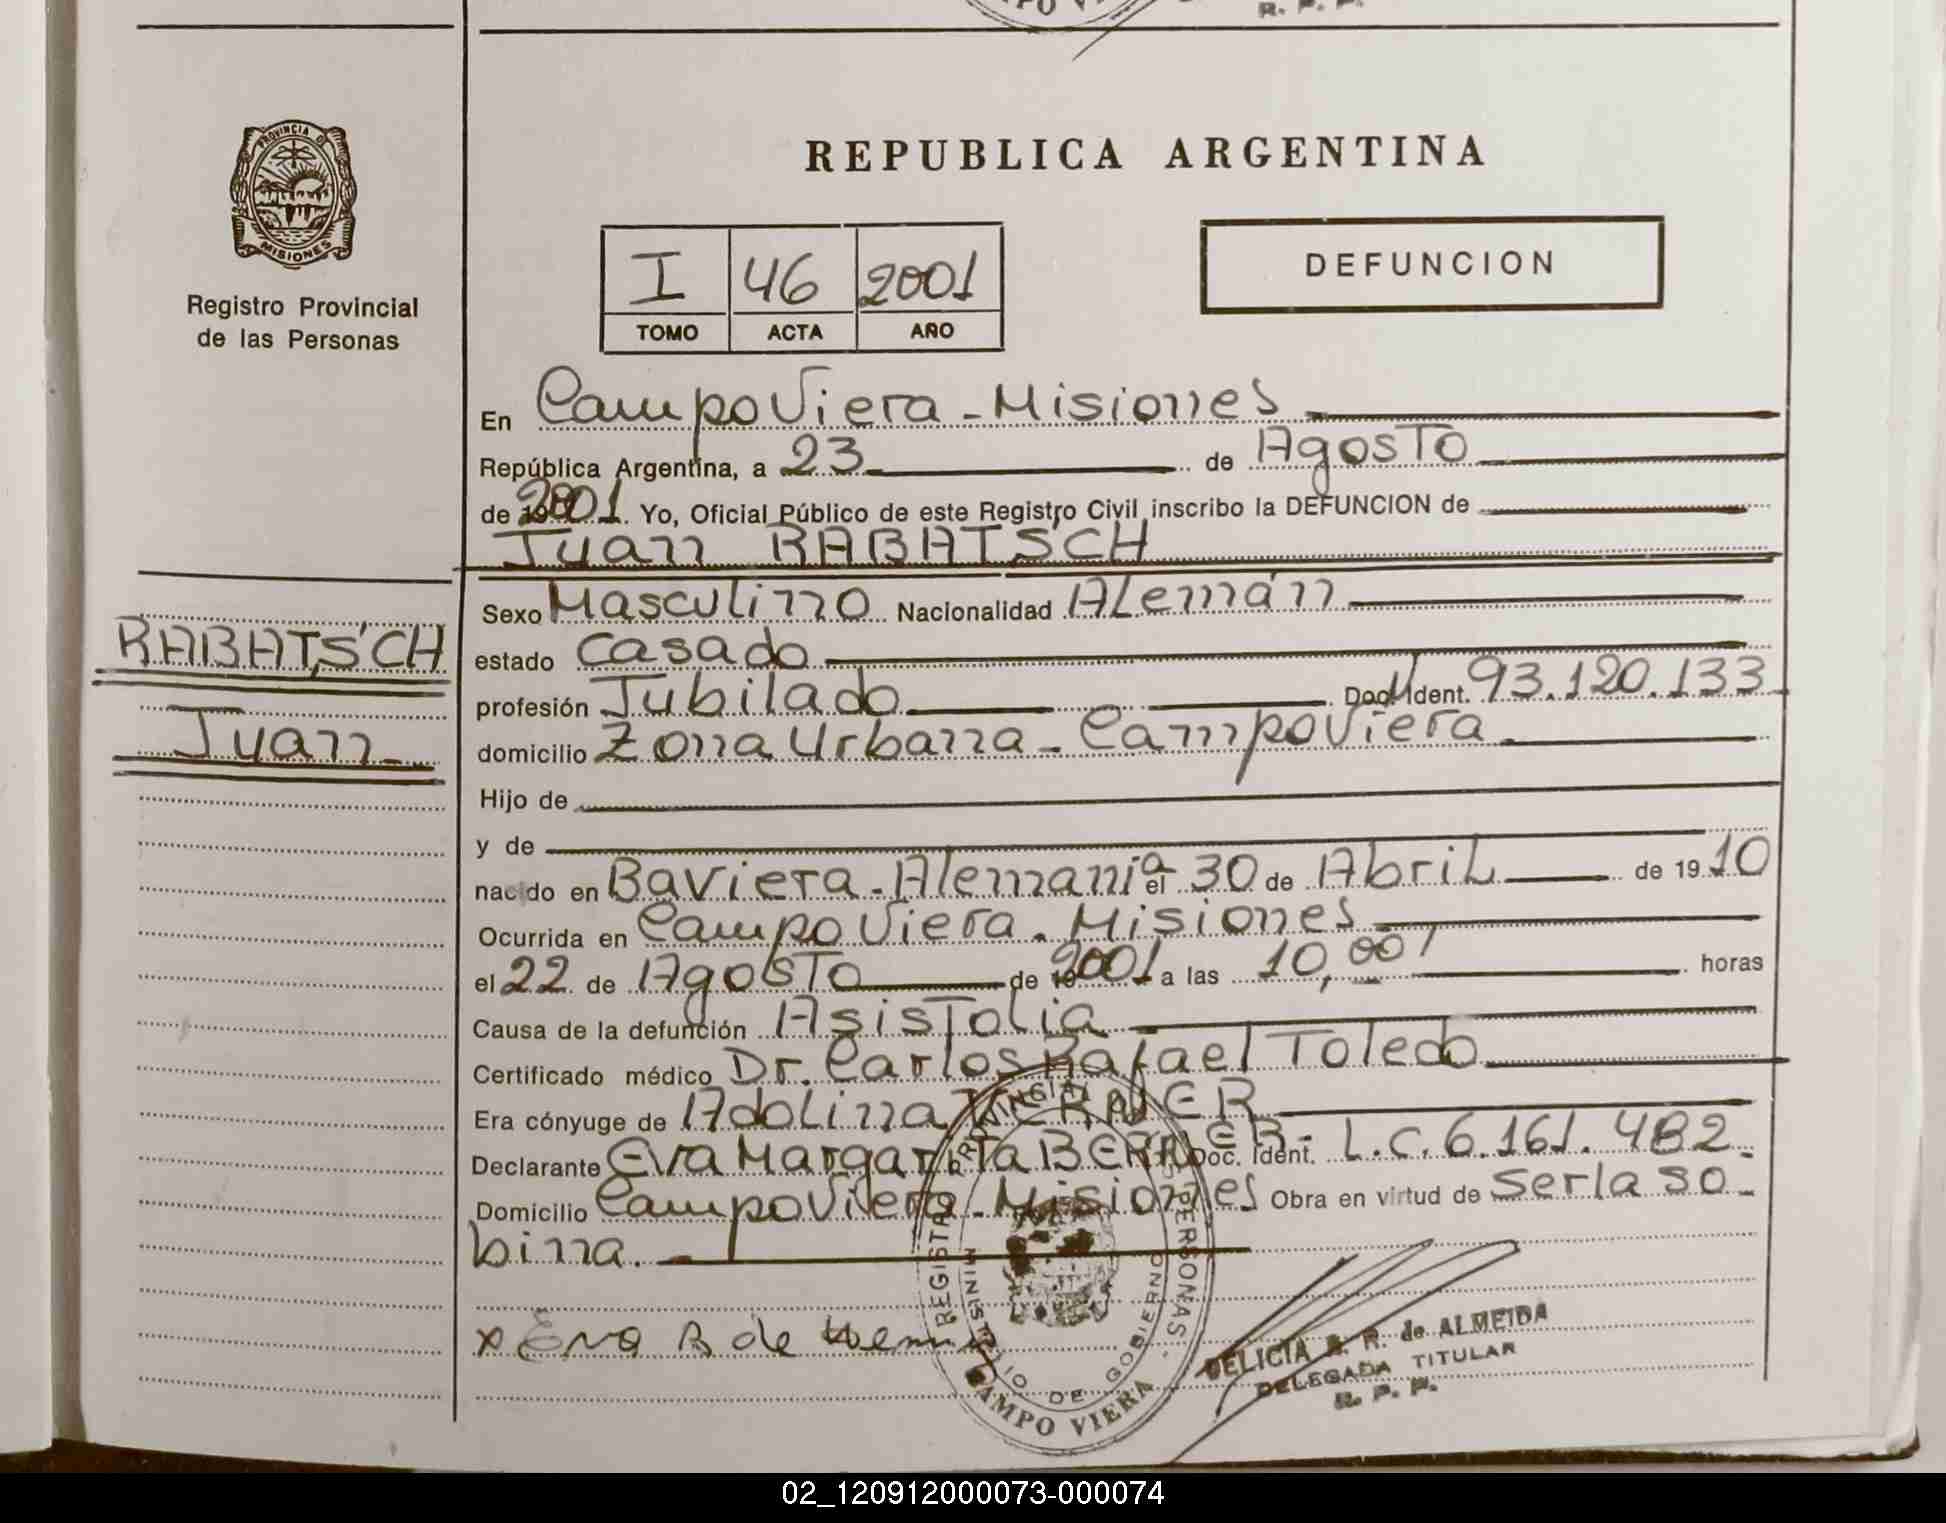 CAMPO VIERA
R. P. P.
PROVINCIA DE
MISIONES
Registro Provincial
de las Personas
REPUBLICA ARGENTINA
I 46 2001
TOMO ACTA AÑO
DEFUNCION
En Campo Viera - Misiones
República Argentina, a 23 de Agosto
de 2001. Yo, Oficial Público de este Registro Civil inscribo la DEFUNCION de
Juan RABATSCH
Sexo Masculino Nacionalidad Alemán
RABATSCH
Juan
estado Casado
profesión Jubilado Doc. Ident. 93.120.133
domicilio Zona Urbana - Campo Viera
Hijo de
y de
nacido en Baviera - Alemania el 30 de Abril de 1910
Ocurrida en Campo Viera. Misiones
el 22 de Agosto de 2001 a las 10,00 horas
Causa de la defunción Asistolia
Certificado médico Dr. Carlos Rafael Toledo
Era cónyuge de Adolina
Declarante Eva Margarita Doc. Ident. L.C. 6.161.482
Domicilio Campo Viera - Misiones Obra en virtud de ser la so
bina.
x Eva B de
REGISTRO PROVINCIAL PERSONAS
MINISTERIO DE GOBIERNO
CAMPO VIERA
DELICIA R. R. de ALMEIDA
DELEGADA TITULAR
R. P. P.
02_120912000073-000074